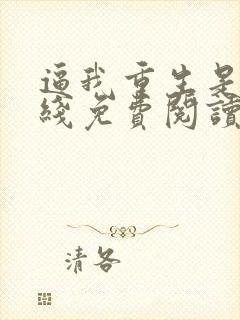 逼我重生是
綫免費閱讀
清各